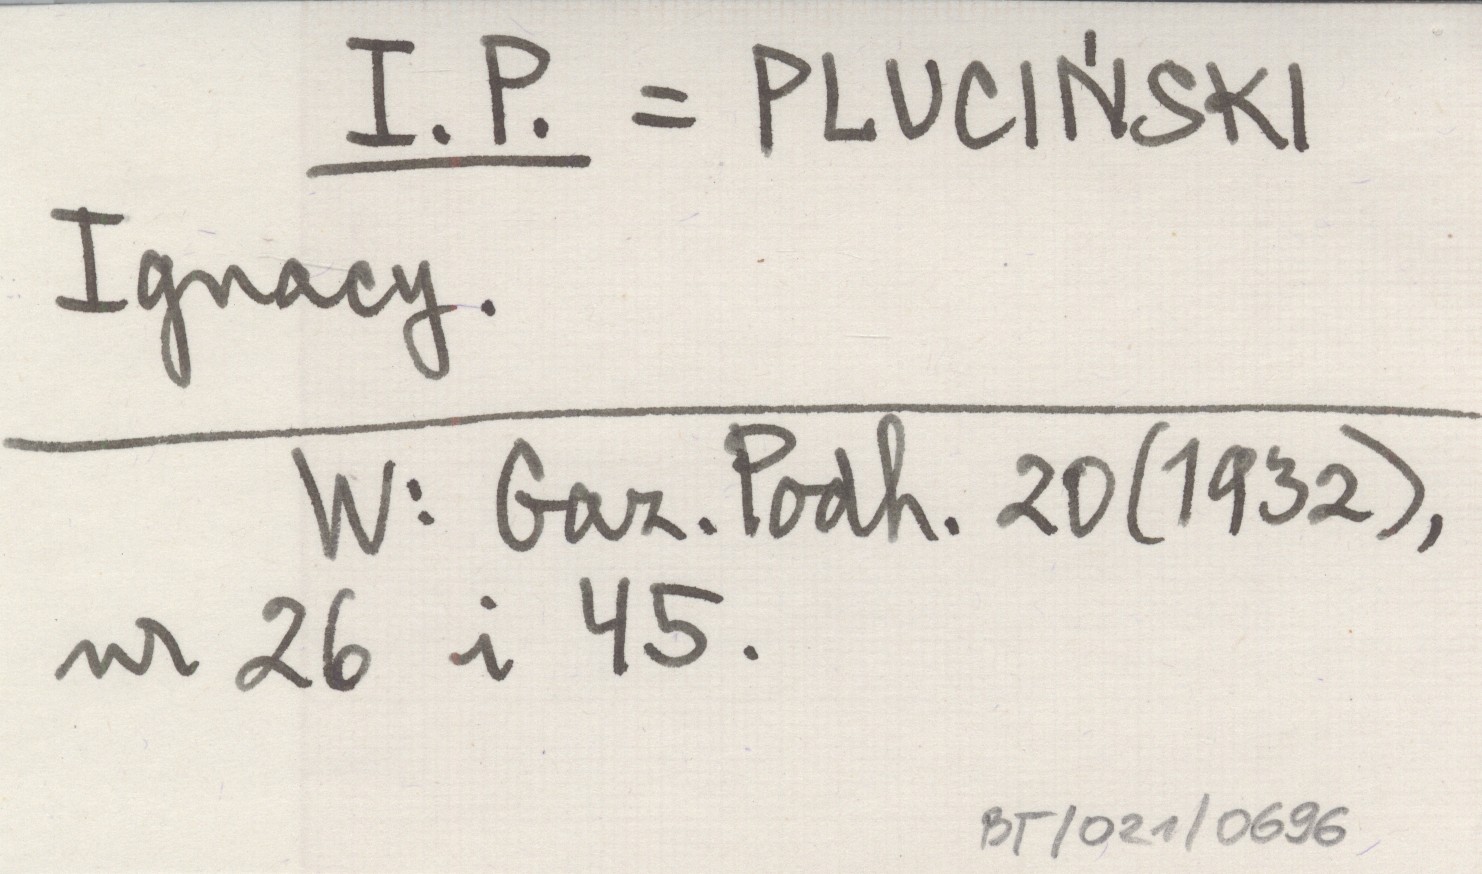 I.P. = PLUCIŃSKI
Ignacy.
W: Gaz. Podh. 20(1932),
nr 26 i 45.
BT/021/0696